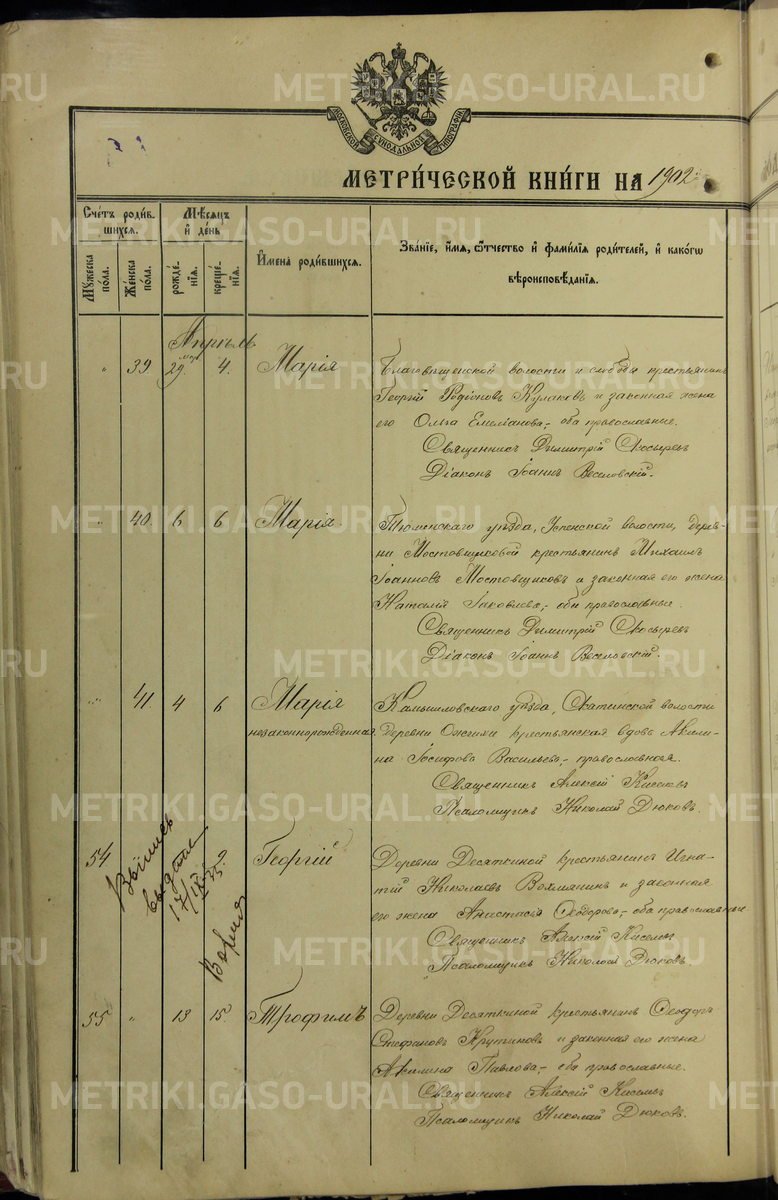 МОСКОВСКОЙ СѴНОДАЛЬНОЙ ТИПОГРАФІИ
МЕТРИ́ЧЕСКОЙ КНИ́ГИ НА 1902
Сче́тъ роди́вшихсѧ.
Мꙋ́жеска по́ла.
Же́нска по́ла.
Мѣ́сѧцъ и҆ де́нь
рожде́нїѧ.
креще́нїѧ.
И҆мена̀ роди́вшихсѧ.
Зва́нїе, и҆́мѧ, ѻ҆́тчество и҆ фами́лїѧ роди́телей, и҆ како́гѡ вѣроисповѣ́данїѧ.
Апрѣль
" 39 мар. 29 4. Марія
Благовѣщенской волости и слободы крестьянинъ
Георгій Родіоновъ Кулаковъ и законная жена
его Ольга Емеліанова,- оба православные.
Священникъ Димитрій Скосыревъ
Діаконъ Іоаннъ Веселовскій.
" 40. 6 6 Марія.
Тюменскаго уѣзда, Успенской волости, дерев-
ни Мостовщиковой крестьянинъ Михаилъ
Іоанновъ Мостовщиковъ и законная его жена
Наталія Іаковлева,- оба православные.
Священникъ Димитрій Скосыревъ
Діаконъ Іоаннъ Веселовскій.
" 41 4 6 Марія
незаконнорожденная.
Камышловскаго уѣзда, Скатинской волости
деревни крестьянская вдова Акили-
на Іосифова Васильева,- православная.
Священникъ Алексій Киселевъ
Псаломщикъ Николай Дюковъ.
54 Георгій
Выпись
выдана
17/IX-35
Деревни Десяткиной крестьянинъ Игна-
тій Николаевъ Вохмянинъ и законная
его жена Анастасія Ѳеодорова,- оба православные
Священникъ Алексій Киселевъ
Псаломщикъ Николай Дюковъ.
55 " 13 15. Трофимъ
Деревни Десяткиной крестьянинъ Ѳеодоръ
Стефановъ Крутиковъ и законная его жена
Акилина Павлова,- оба православные.
Священникъ Алексій Киселевъ
Псаломщикъ Николай Дюковъ.
METRIKI.GASO-URAL.RU